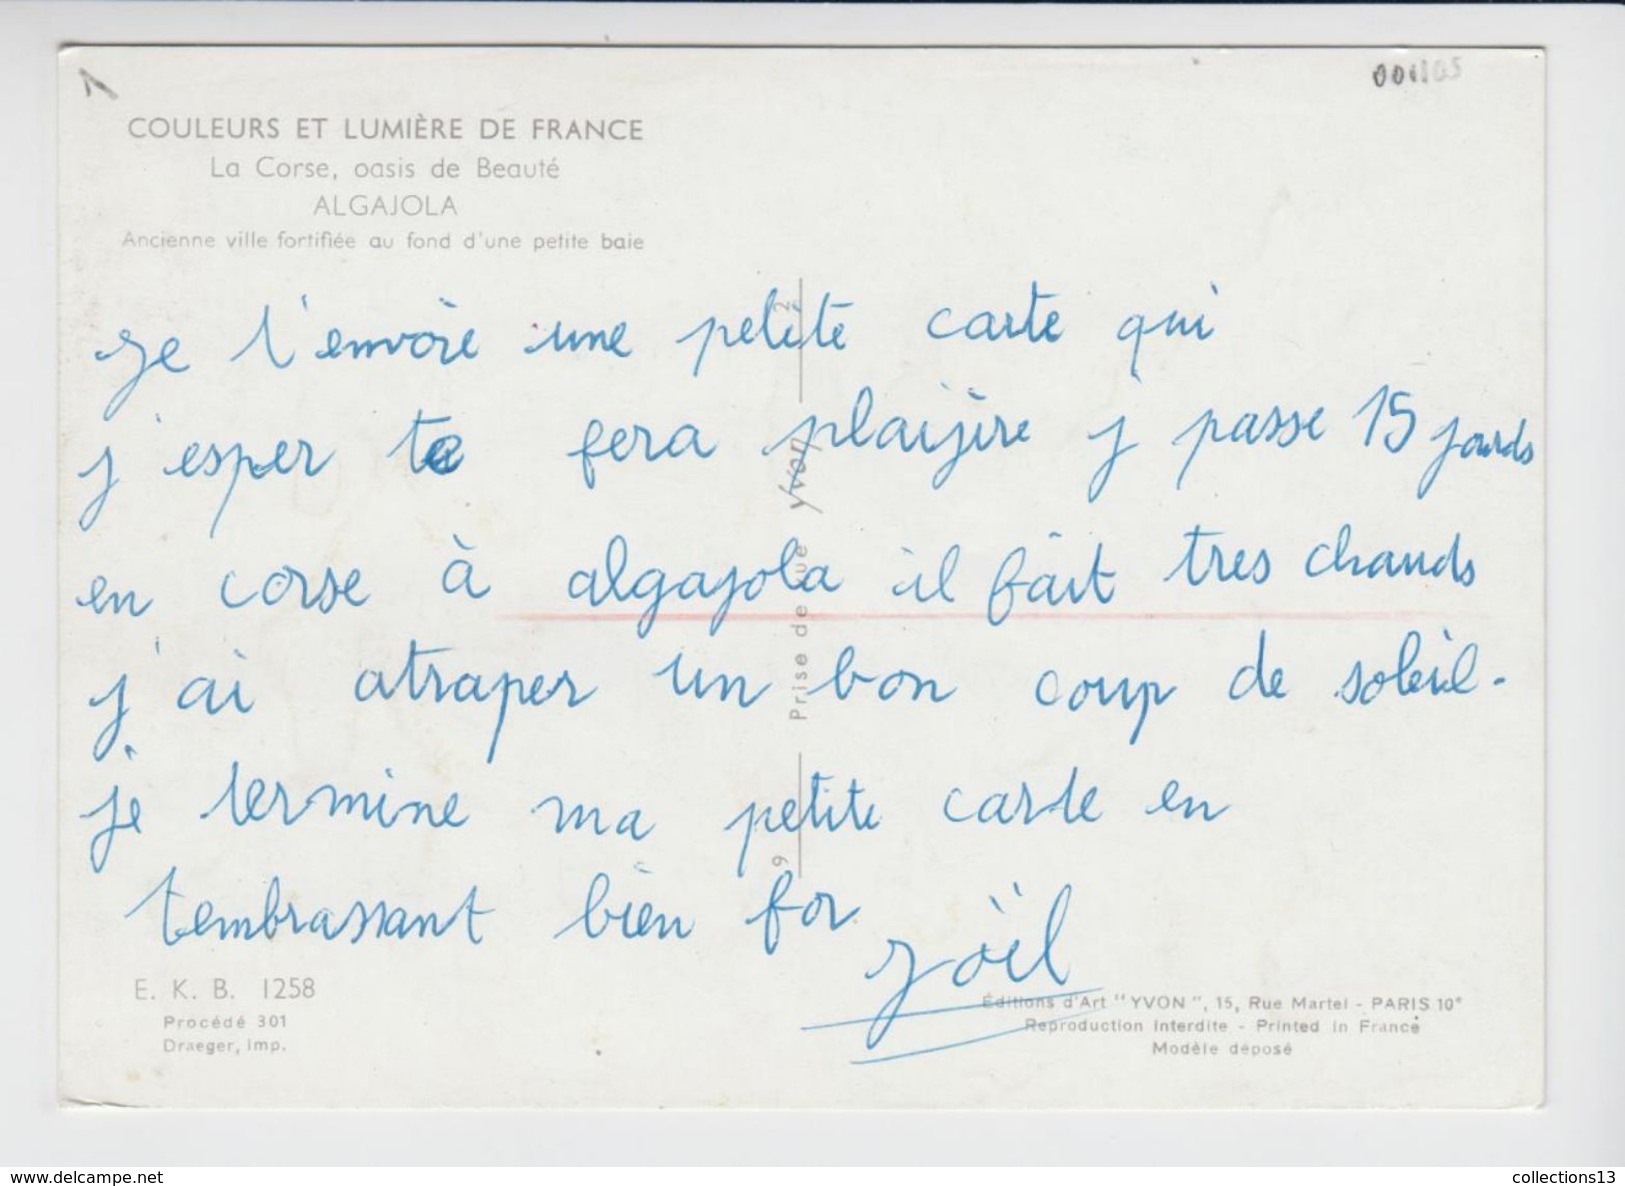 001105
COULEURS ET LUMIÈRE DE FRANCE
La Corse, oasis de Beauté
ALGAJOLA
Ancienne ville fortifiée au fond d'une petite baie
Je t'envoie une petite carte qui
j'esper te fera plaisire j passe 15 jourds
en corse à algajola il fait tres chauds
j'ai atraper un bon coup de soleil.
je termine ma petite carte en
tembrassant bien for
Joël
Prise de vue Yvon
E. K. B. 1258
Procédé 301
Draeger, imp.
Éditions d'Art "YVON", 15, Rue Martel - PARIS 10e
Reproduction Interdite - Printed in France
Modèle déposé
www.delcampe.net
collections13